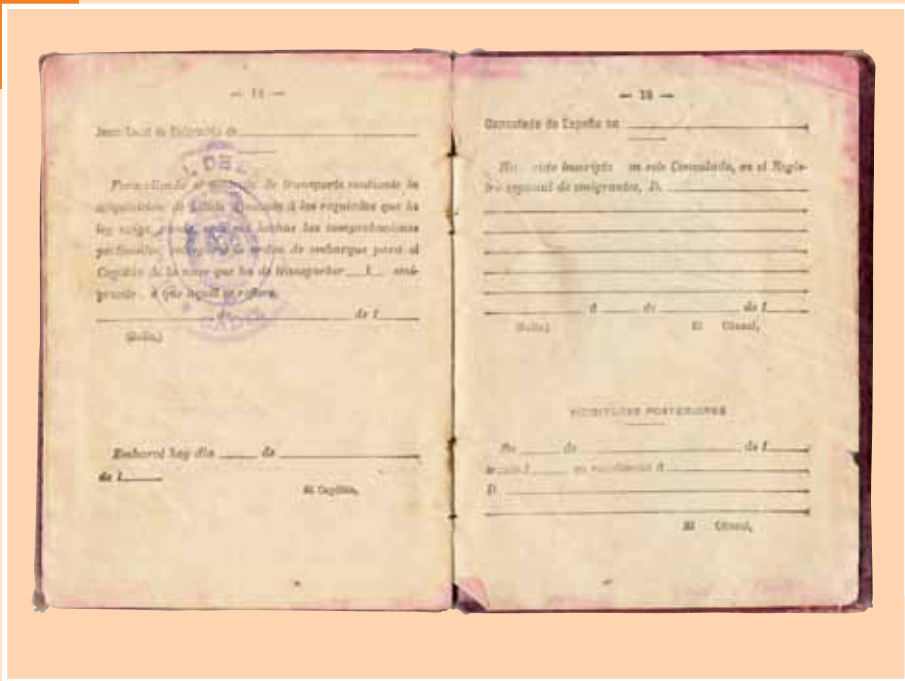 Junta Local de Emigración de
Formalizado el contrato de transporte mediante la
adquisición de billete ajustado á los requisitos que la
ley exige, puede, una vez hechas las comprobaciones
de orden de embarque para el
Capitán de la nave que ha de transportar 1 emi-
grante á que aquél se refiere.
de de 1
(Sello.)
Embarcó hoy día de
de 1
El Capitán,
Consulado de España en
Ha sido inscripto en este Consulado, en el Regis-
tro especial de emigrantes, D.
á de de 1
(Sello.) El Cónsul,
VICISITUDES POSTERIORES
En de de 1
su residencia á
D.
El Cónsul,